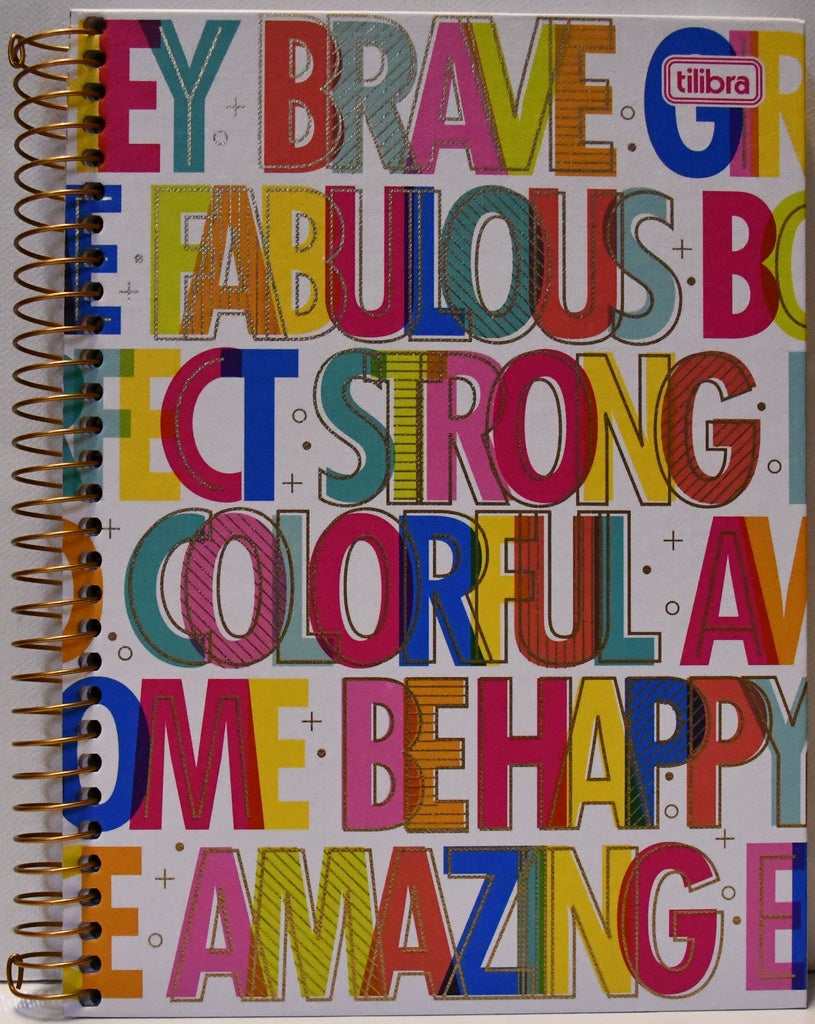 EY BRAVE GIR
tilibra
E FABULOUS BO
FECT STRONG
COLORFUL AW
OME BE HAPPY
E AMAZING E